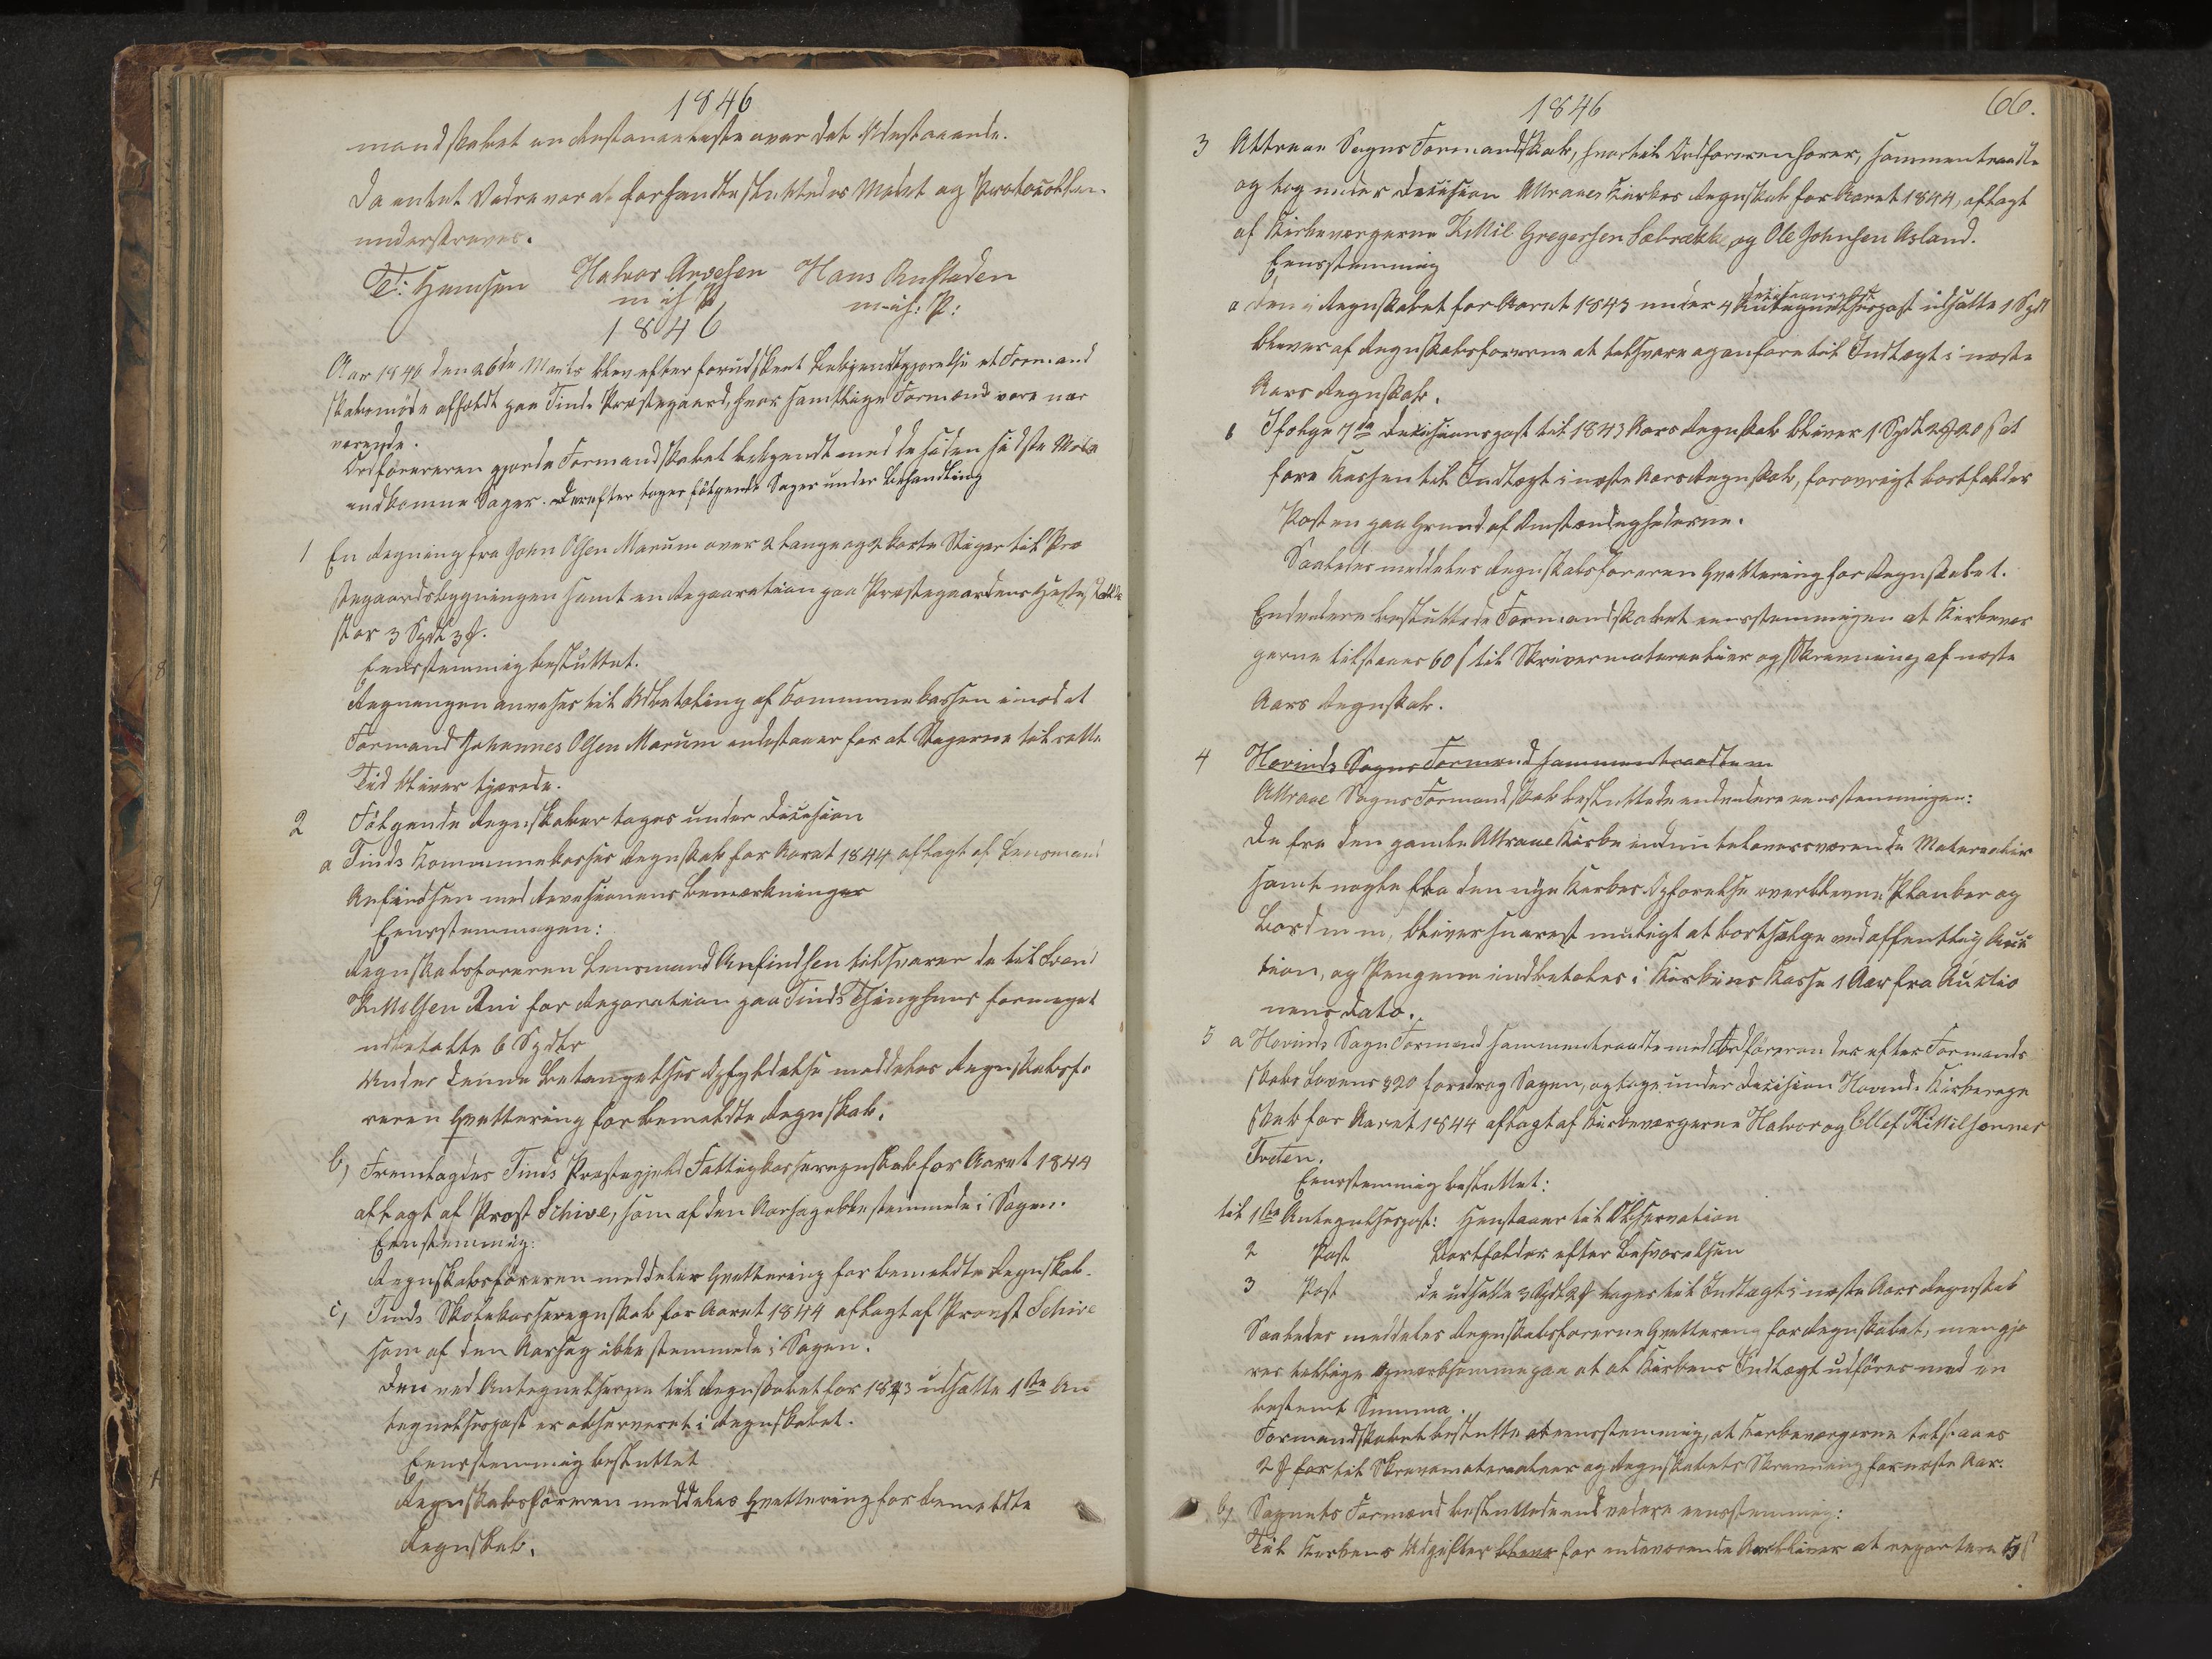 1846
mandskabet en Restanceliste over det Udestaaende.
Da intet Videre var at forhandle sluttedes Mødet og Protocollen
underskreves.
T. Hansen Halvor Arvesen Hans Rustaden
m i h P. m: i h: P:
1846
Aar 1846 den 26de Marts blev efter forudskeet Bekjendtgjørelse et Formand
skabsmöde afholdt paa Tinds Præstegaard, hvor samtlige Formænd vare nær
værende.
Ordföreren gjorde Formandskabet bekjendt med de siden sidste Möde
indkomne Sager. Derefter toges fölgende Sager under Behandling
1 En Regning fra John Olsen Marum over 2 lange og 2 korte Stiger til Præ
stegaardsbygningen samt en Reparation paa Præstegaardens Hestestald
stor 3 Spdl 3 ƒ.
Eensstemmig besluttet.
Regningen anvises til Udbetaling af Communekassen imod at
Formand Johannes Olsen Marum indestaaer for at Stigerne til rette
Tid bliver tjærede.
2 Fölgende Regnskaber toges under Decision
a Tinds Kommunekasses Regnskab for Aaret 1844 aflagt af Lensmand
Anfindsen med Revisionens Bemærkninger
Eensstemmigen:
Regnskabsföreren Lensmand Anfindsen tilsvarer de til Svend
Kittilsen Rui for Reparation paa Tinds Thinghuus formeget
udbetalte 6 Spdlr
Under denne Betingelses Opfyldelse meddeles Regnskabsfö
reren Qvittering for bemeldte Regnskab.
b, Fremlagdes Tinds Præstegjelds Fattigkasseregnskab for Aaret 1844
aflagt af Prost Schive, som af den Aarsag ikke stemmede i Sagen.
Eenstemmig:
Regnskabsföreren meddeles Qvittering for bemeldte Regnskab.
c, Tinds Skolekasseregnskab for Aaret 1844 aflagt af Provst Schive
som af den Aarsag ikke stemmede i Sagen.
Den ved Antegnelserne til Regnskabet for 1843 udsatte 1ste An
tegnelsespost er observeret i Regnskabet.
Eensstemmig besluttet
Regnskabsföreren meddeles Qvittering for bemeldte
Regnskab.
1846 66.
3 Attraae Sogns Formandskab, hvortil Ordföreren hører, sammentraadte
og tog under Decision Attraaes Kirkes Regnskab for Aaret 1844, aflagt
af Kirkeværgerne Kittil Gregersen Sæbrække og Ole Johnsen Asland.
Eensstemmig
Decisions
a Den i Regnskabet for Aaret 1843 under 4 Antegnelsespost udsatte 1 Spdl
bliver af Regnskabsførerne at tilsvare og anføre til Indtægt i næste
Aars Regnskab.
b Ifølge 7de Decisionspost til 1843 Aars Regnskab bliver 1 Spdl 2 ƒ 20 ß at
føre Kassen til Indtægt i næste Aars Regnskab, forøvrigt bortfalder
Posten paa Grund af Omstændighederne.
Saaledes meddeles Regnskabsføreren Qvittering for Regnskabet.
Endvidere besluttede Formandskabet eensstemmigen at Kirkevær
gerne tilstaaes 60 ß til Skrivermaterialier og Skrivning af næste
Aars Regnskab.
4 Hovinds Sogns Formænd sammentraadte m
Attraae Sogns Formandskab besluttede endvidere eensstemmigen:
De fra den gamle Attraae Kirke endnu tiloversværende Materialier
samt nogle fra den nye Kirkes Opførelse overblevne Planker og
Bord m m, bliver snarest muligt at bortsælge ved offentlig Auc
tion, og Pengene indbetales i Kirkens Kasse 1 Aar fra Auctio
nens Dato.
5 a Hovinds Sogns Formænd sammentraadte med Ordföreren der efter Formands
skabs Lovens § 20 foredrog Sagen, og toges under Decision Hovinds Kirkeregn
skab for Aaret 1844 aflagt af Kirkeværgerne Halvor og Ellef Kittilsønner
Traten.
Eensstemmig besluttet:
til 1ste Antegnelsespost: Henstaaer til Observation
2 Post Bortfalder efter Besvarelsen
3 Post De udsatte 3 Spdl 2 ƒ tages til Indtægt i næste Aars Regnskab
Saaledes meddeles Regnskabsførerne Qvittering for Regnskabet, men gjø
res tillige opmærksomme paa at at Kirkens Indtægt udföres med en
bestemt Summa.
Formandskabet beslutte at eensstemmig, at Kirkeværgerne tilstaaes
2 ƒ for til Skrivematerialier og Regnskabets Skrivning for næste Aar.
b, Sognets Formænd besluttede endvidere eensstemmig:
Til Kirkens Udgifter blever for indeværende Aar bliver at repartere